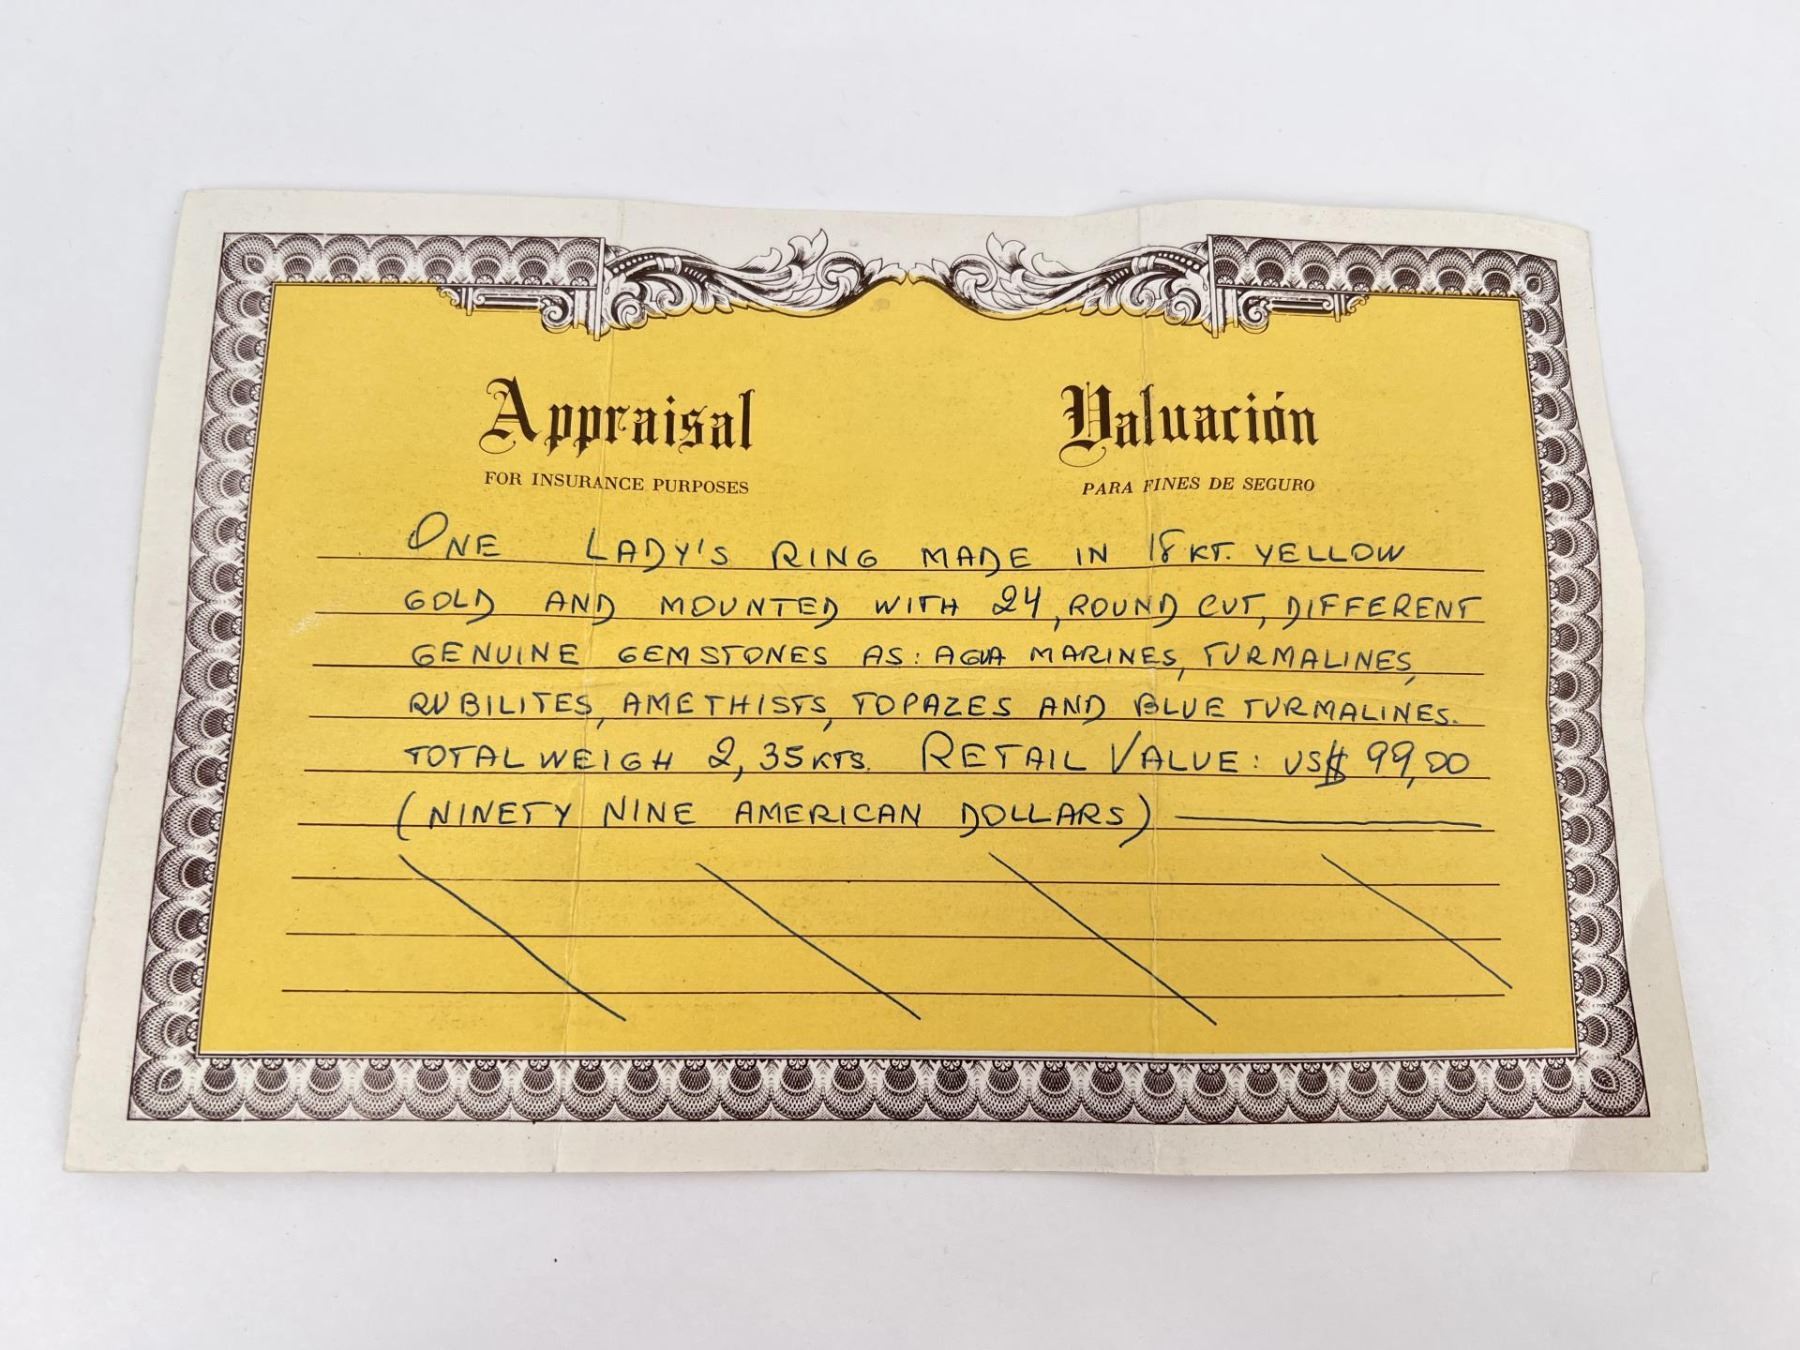 Appraisal
FOR INSURANCE PURPOSES
Valuación
PARA FINES DE SEGURO
ONE LADY'S RING MADE IN 18 KT. YELLOW
GOLD AND MOUNTED WITH 24, ROUND CUT, DIFFERENT
GENUINE GEMSTONES AS: AGUA MARINES, TURMALINES,
RUBILITES, AMETHISTS, TOPAZES AND BLUE TURMALINES.
TOTAL WEIGH 2,35 KTS. RETAIL VALUE: US$ 99,00
(NINETY NINE AMERICAN DOLLARS)